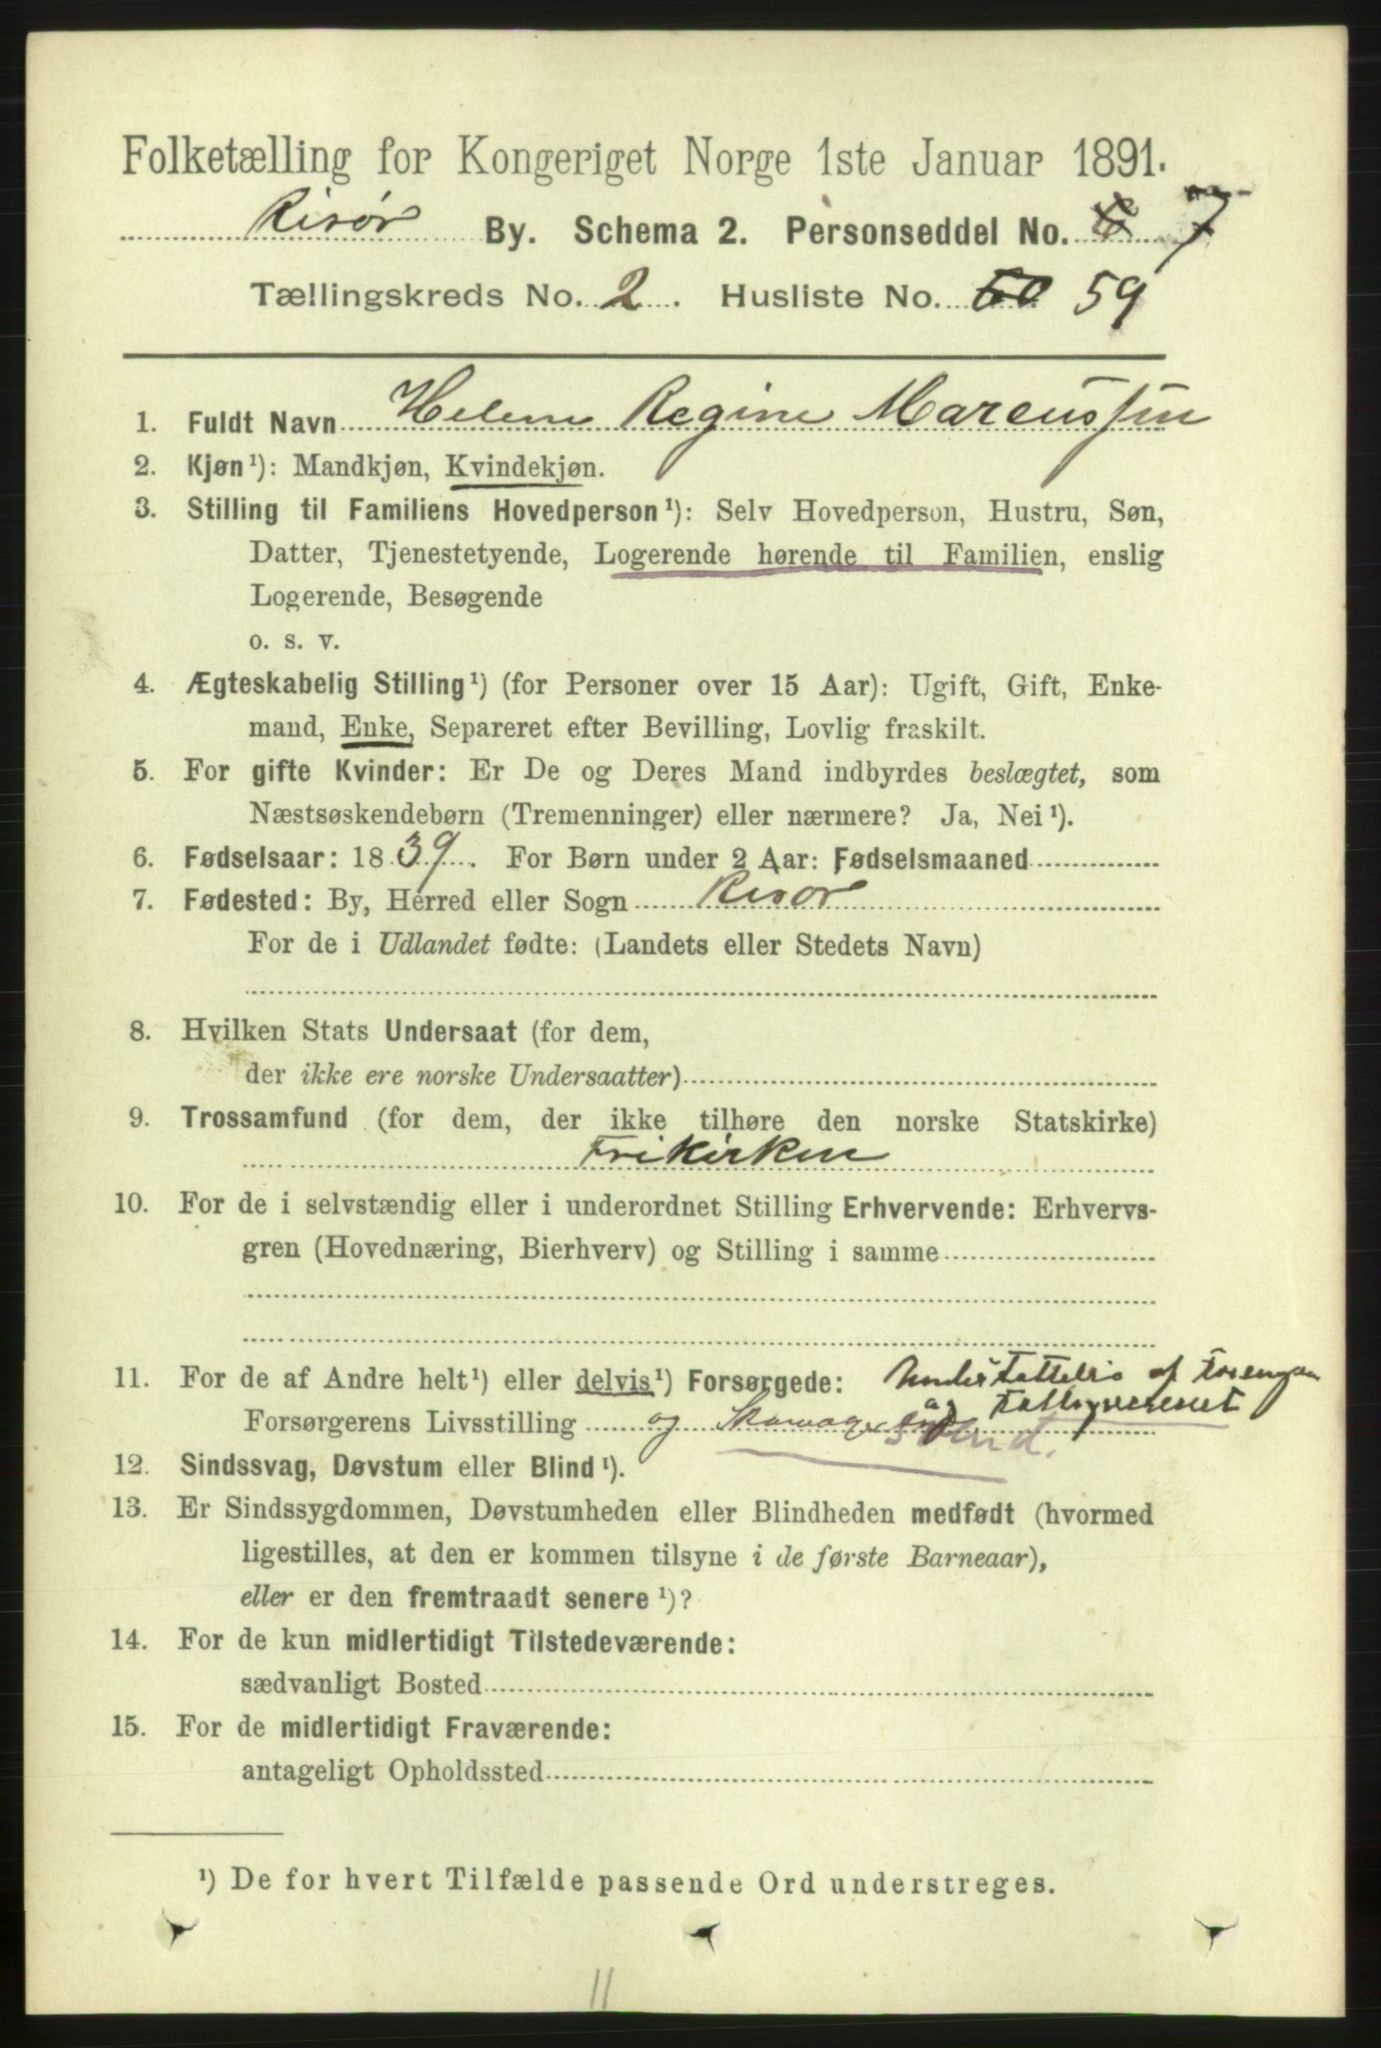 Folketælling for Kongeriget Norge 1ste Januar 1891.
Risør By. Schema 2. Personseddel No. 7
Tællingskreds No. 2. Husliste No. 60 59
1. Fuldt Navn Helene Regine Marcussen
2. Kjøn¹): Mandkjøn, Kvindekjøn.
3. Stilling til Familiens Hovedperson¹): Selv Hovedperson, Hustru, Søn,
Datter, Tjenestetyende, Logerende hørende til Familien, enslig
Logerende, Besøgende
o. s. v.
4. Ægteskabelig Stilling¹) (for Personer over 15 Aar): Ugift, Gift, Enke-
mand, Enke, Separeret efter Bevilling, Lovlig fraskilt.
5. For gifte Kvinder: Er De og Deres Mand indbyrdes beslægtet, som
Næstsøskendebørn (Tremenninger) eller nærmere? Ja, Nei¹).
6. Fødselsaar: 1839. For Børn under 2 Aar: Fødselsmaaned
7. Fødested: By, Herred eller Sogn Risør
For de i Udlandet fødte: (Landets eller Stedets Navn)
8. Hvilken Stats Undersaat (for dem,
der ikke ere norske Undersaatter)
9. Trossamfund (for dem, der ikke tilhøre den norske Statskirke)
Frikirken
10. For de i selvstændig eller i underordnet Stilling Erhvervende: Erhvervs-
gren (Hovednæring, Bierhverv) og Stilling i samme
11. For de af Andre helt¹) eller delvis¹) Forsørgede: af
Forsørgerens Livsstilling og og Fattigvesenet
12. Sindssvag, Døvstum eller Blind¹).
13. Er Sindssygdommen, Døvstumheden eller Blindheden medfødt (hvormed
ligestilles, at den er kommen tilsyne i de første Barneaar),
eller er den fremtraadt senere¹)?
14. For de kun midlertidigt Tilstedeværende:
sædvanligt Bosted
15. For de midlertidigt Fraværende:
antageligt Opholdssted
¹) De for hvert Tilfælde passende Ord understreges.
11